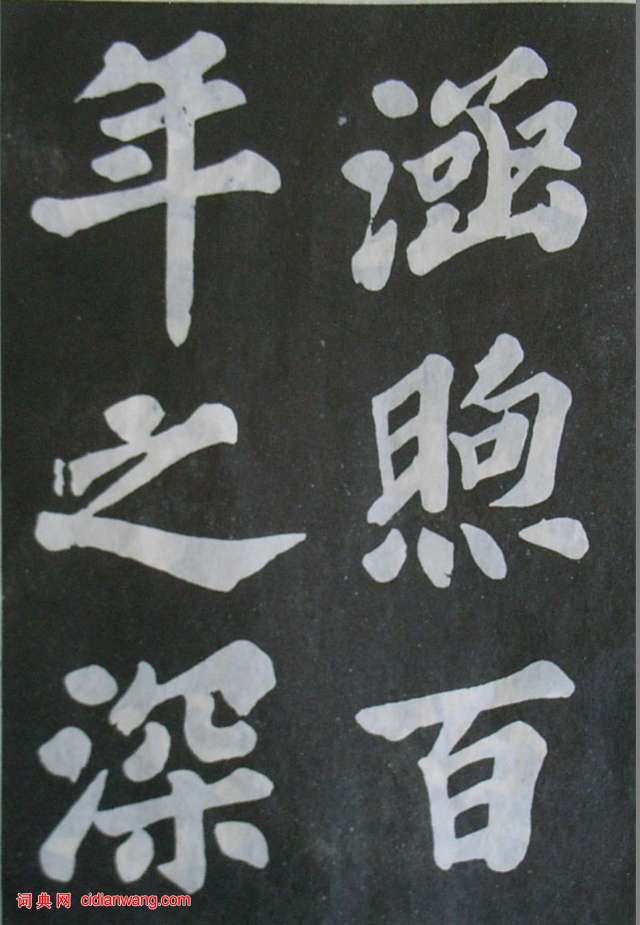 涵煦百
年之深
词典网 cidianwang.com